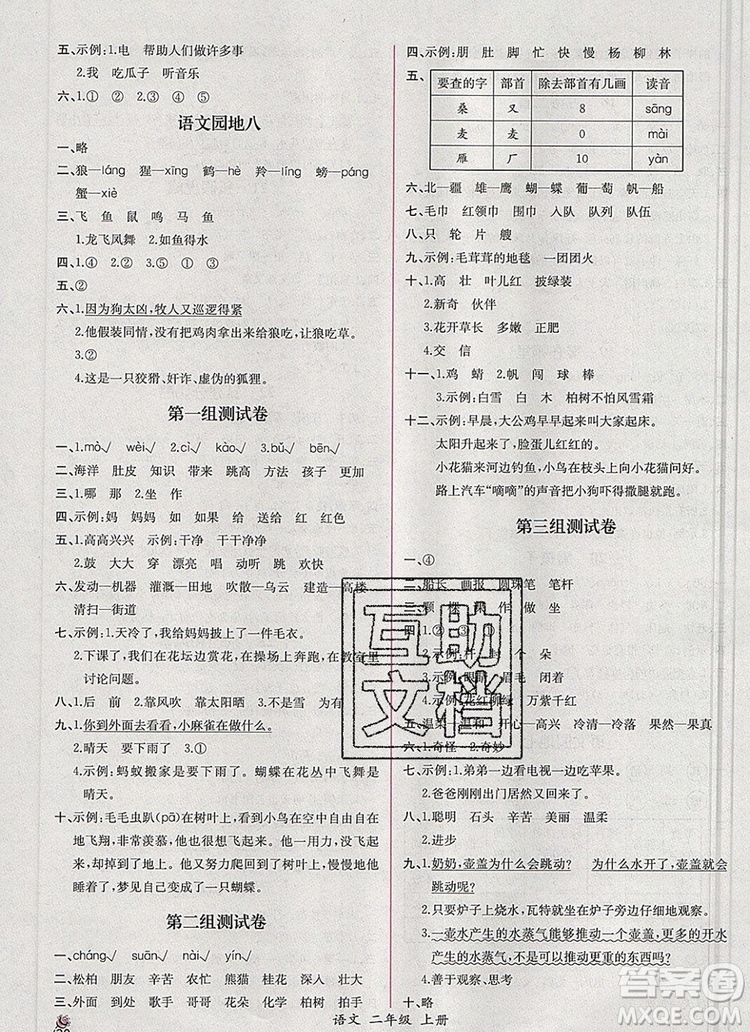 五、示例:1.电　帮助人们做许多事
2.我　吃瓜子　听音乐
六、1.①　②　2.③　④　⑤
语文园地八
一、略
二、狼—láng　猩—xīng　鹤—hè　羚—líng　螃—páng
蟹—xiè
三、飞　鱼　鼠　鸣　马　鱼
1.龙飞凤舞　2.如鱼得水
四、1.④　2.①　3.②　4.⑤　5.③
五、②
六、1.因为狗太凶,牧人又巡逻得紧
2.他假装同情,没有把鸡肉拿出来给狼吃,让狼吃草。
3.②
4.这是一只狡猾、奸诈、虚伪的狐狸。
第一组测试卷
一、1.mò√　wèi√　2.cì√　kào√　3.bǔ√　bēn√
二、海洋　肚皮　知识　带来　跳高　方法　孩子　更加
三、1.哪　那　2.坐　作
四、示例:妈　妈妈　如　如果　给　送给　红　红色
五、1.高高兴兴　示例:干干净净
2.鼓　大　穿　漂亮　唱　动听　跳　欢快
六、发动—机器　灌溉—田地　吹散—乌云　建造—高楼
清扫—街道
七、示例:1.天冷了,我给妈妈披上了一件毛衣。
2.下课了,我们在花坛边赏花,在操场上奔跑,在教室里
讨论问题。
八、1.后　前　2.靠风吹　靠太阳晒　靠喜鹊吃
九、1.你到外面去看看,小麻雀在做什么。
2.晴天　要下雨了　3.①
4.示例:蚂蚁搬家是要下雨了。蝴蝶在花丛中飞舞是
晴天。
十、示例:毛毛虫趴(pā)在树叶上,看到小鸟在空中自由
地飞翔,非常羡慕。他想飞起来,可怎么也飞不
起来,非常伤心。不久,他又回到了树叶上,静静地
睡着了,梦见自己变成了一只蝴蝶。
第二组测试卷
一、cháng√　suān√　nài√　yín√
二、松柏　朋友　辛苦　农忙　熊猫　桂花　深入　壮大
三、外面　步子　歌手　哥哥　
语文　二年级　上册
四、示例:朋　肚　脚　忙　快　慢　杨　柳　林
五、
要查的字　部首　除去部首有几画　读音
桑　又　8　sāng
麦　麦　0　mài
雁　厂　10　yàn
六、北—疆　雄—鹰　蝴—蝶　葡—萄　帆—船
七、毛巾　红领巾　围巾　入队　队列　队伍
八、只　轮　片　艘
九、示例:毛茸茸的地毯　一团团火
十、1.高　壮　叶儿红　披绿装
2.新奇　伙伴
3.花开草长　多嫩　正肥
4.交　信
十一、1.鸡　蜻　2.帆　闯　球　棒
3.示例:白雪　白　木　柏树不怕风雪霜
十二、示例:早晨,大公鸡早早起来叫大家起床。
太阳升起来了,脸蛋儿红红的。
小花猫来河边钓鱼,小鸟在枝头上对小花猫问好。
路上汽车“嘀嘀”的声音把小狗吓得撒腿就跑。
第三组测试卷
一、④
二、船长　画报　圆珠笔　笔杆
三、颗　棵　果　作　做　坐
四、1.②　③　①
六、1.奇怪　2.奇妙
七、示例:1.弟弟一边看电视一边吃苹果。
2.爸爸刚刚出差回来,妈妈就让他去买菜。
八、1.聪明　石头　辛苦　美丽　温柔
2.进步
九、1.奶奶,壶盖为什么会跳动?　为什么水开了,壶盖
就会跳动呢?
2.只要炉子上烧水,瓦特就坐在炉子旁边仔细地观察。
3.一壶水产生的水蒸气能够推动一个壶盖,更多的开水
产生的水蒸气不就能推动更重的东西了吗?
4.善于观察、思考
十、略
互助文档
答案圈